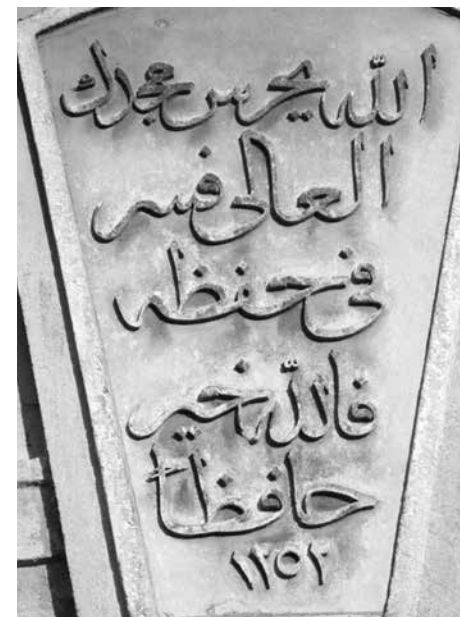 الله يحرس مجدك
العالى فسر
فى حفظه
فالله خير
حافظا
١٣٥٢